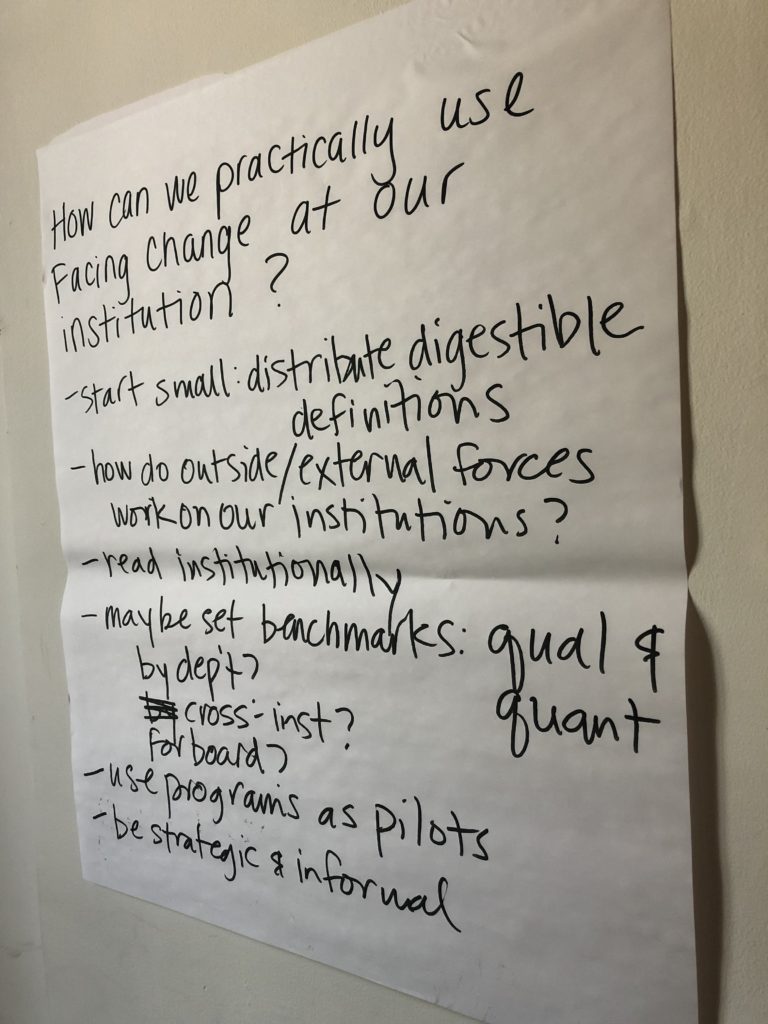 How can we practically use
Facing Change at our
institution ?
-start small: distribute digestible
definitions
-how do outside/external forces
work on our institutions?
-read institutionally
-maybe set benchmarks: qual &
quant
by dep't?
cross-inst?
for board?
-use programs as pilots
-be strategic & informal